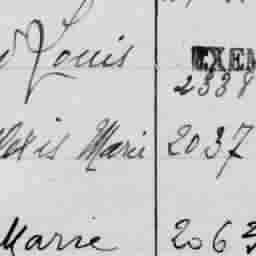 Louis EXEM
2338
Alexis Marie 2037
Marie 2062